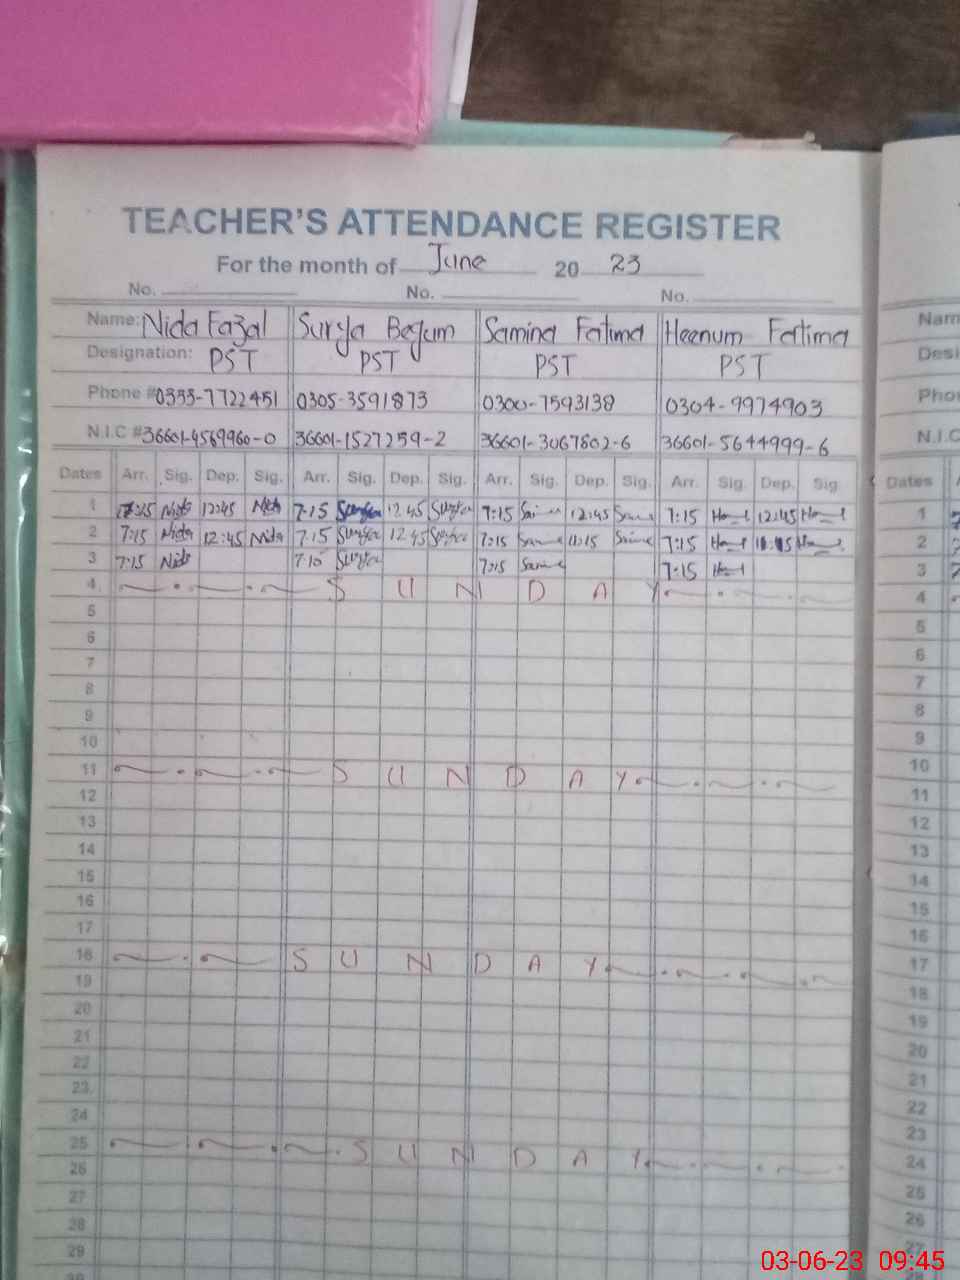 TEACHER'S ATTENDANCE REGISTER
For the month of June 20 23
No. No. No.
Name: Nida Fazal Surya Begum Samina Fatima Heenum Fatima Nam
Designation: PST PST PST PST Desi
Phone # 0333-7722451 0305-3591873 0300-7593138 0304-9974903 Pho
N.I.C # 36601-4569960-0 36601-1527259-2 36601-3067802-6 36601-5644999-6 N.I.C
Dates Arr. Sig. Dep. Sig. Arr. Sig. Dep. Sig. Arr. Sig. Dep. Sig. Arr. Sig. Dep. Sig Dates
1 7:15 Nida 12:45 Nida 7:15 12:45 7:15 12:45 7:15 12:45 1
2 7:15 Nida 12:45 Nida 7:15 12:45 7:15 11:15 7:15 2
3 7:15 Nida 7:15 7:15 7:15 3
4 SUNDAY 4
5 5
6 6
7 7
8 8
9 9
10 10
11 SUNDAY 11
12 12
13 13
14 14
15 15
16 16
17 17
18 SUNDAY 18
19 19
20 20
21 21
22 22
23 23
24 24
25 SUNDAY 25
26 26
27 27
28
29
03-06-23 09:45